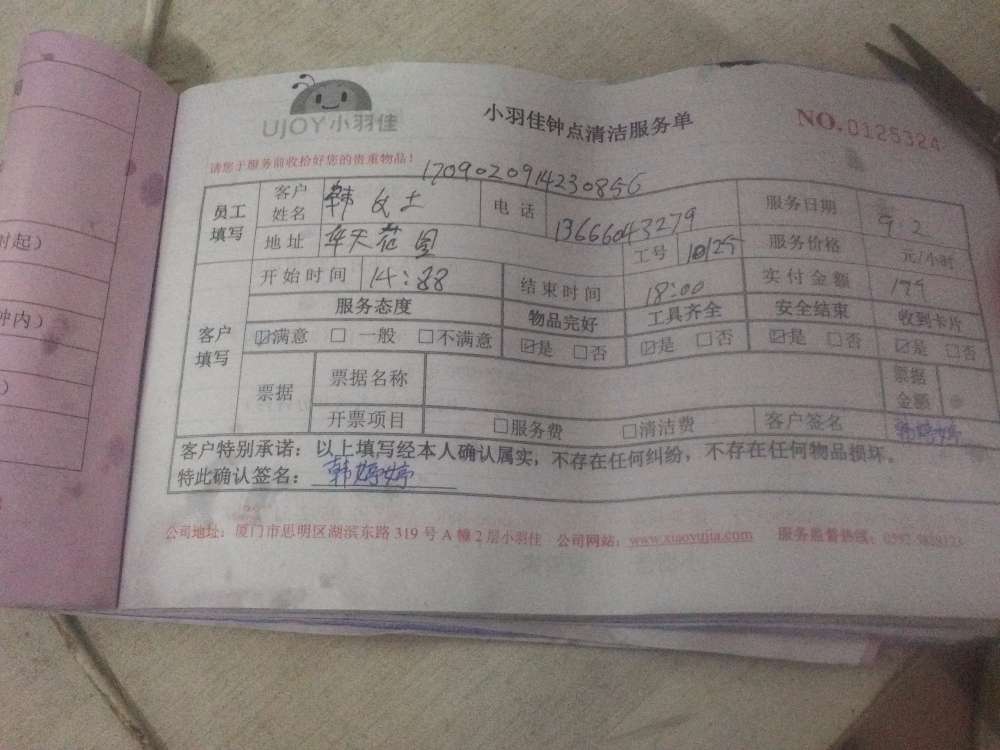 UJOY小羽佳
小羽佳钟点清洁服务单
NO.0125324
请您于服务前收拾好您的贵重物品！
170902091423085 6
员工填写 客户姓名 韩女士 电话 13666043279 服务日期 9.2
地址 花园 工号 服务价格 元/小时
客户填写 开始时间 14:88 结束时间 18:00 实付金额
服务态度 物品完好 工具齐全 安全结束 收到卡片
☑满意 □一般 □不满意 ☑是 □否 ☑是 □否 ☑是 □否 ☑是 □否
票据 票据名称 票据金额
开票项目 □服务费 □清洁费 客户签名 韩婷婷
客户特别承诺：以上填写经本人确认属实，不存在任何纠纷，不存在任何物品损坏。
特此确认签名：韩婷婷
公司地址：厦门市思明区湖滨东路 319 号 A 幢 2 层小羽佳 公司网站：www.xiaoyujia.com 服务监督热线：
时起）
钟内）
）